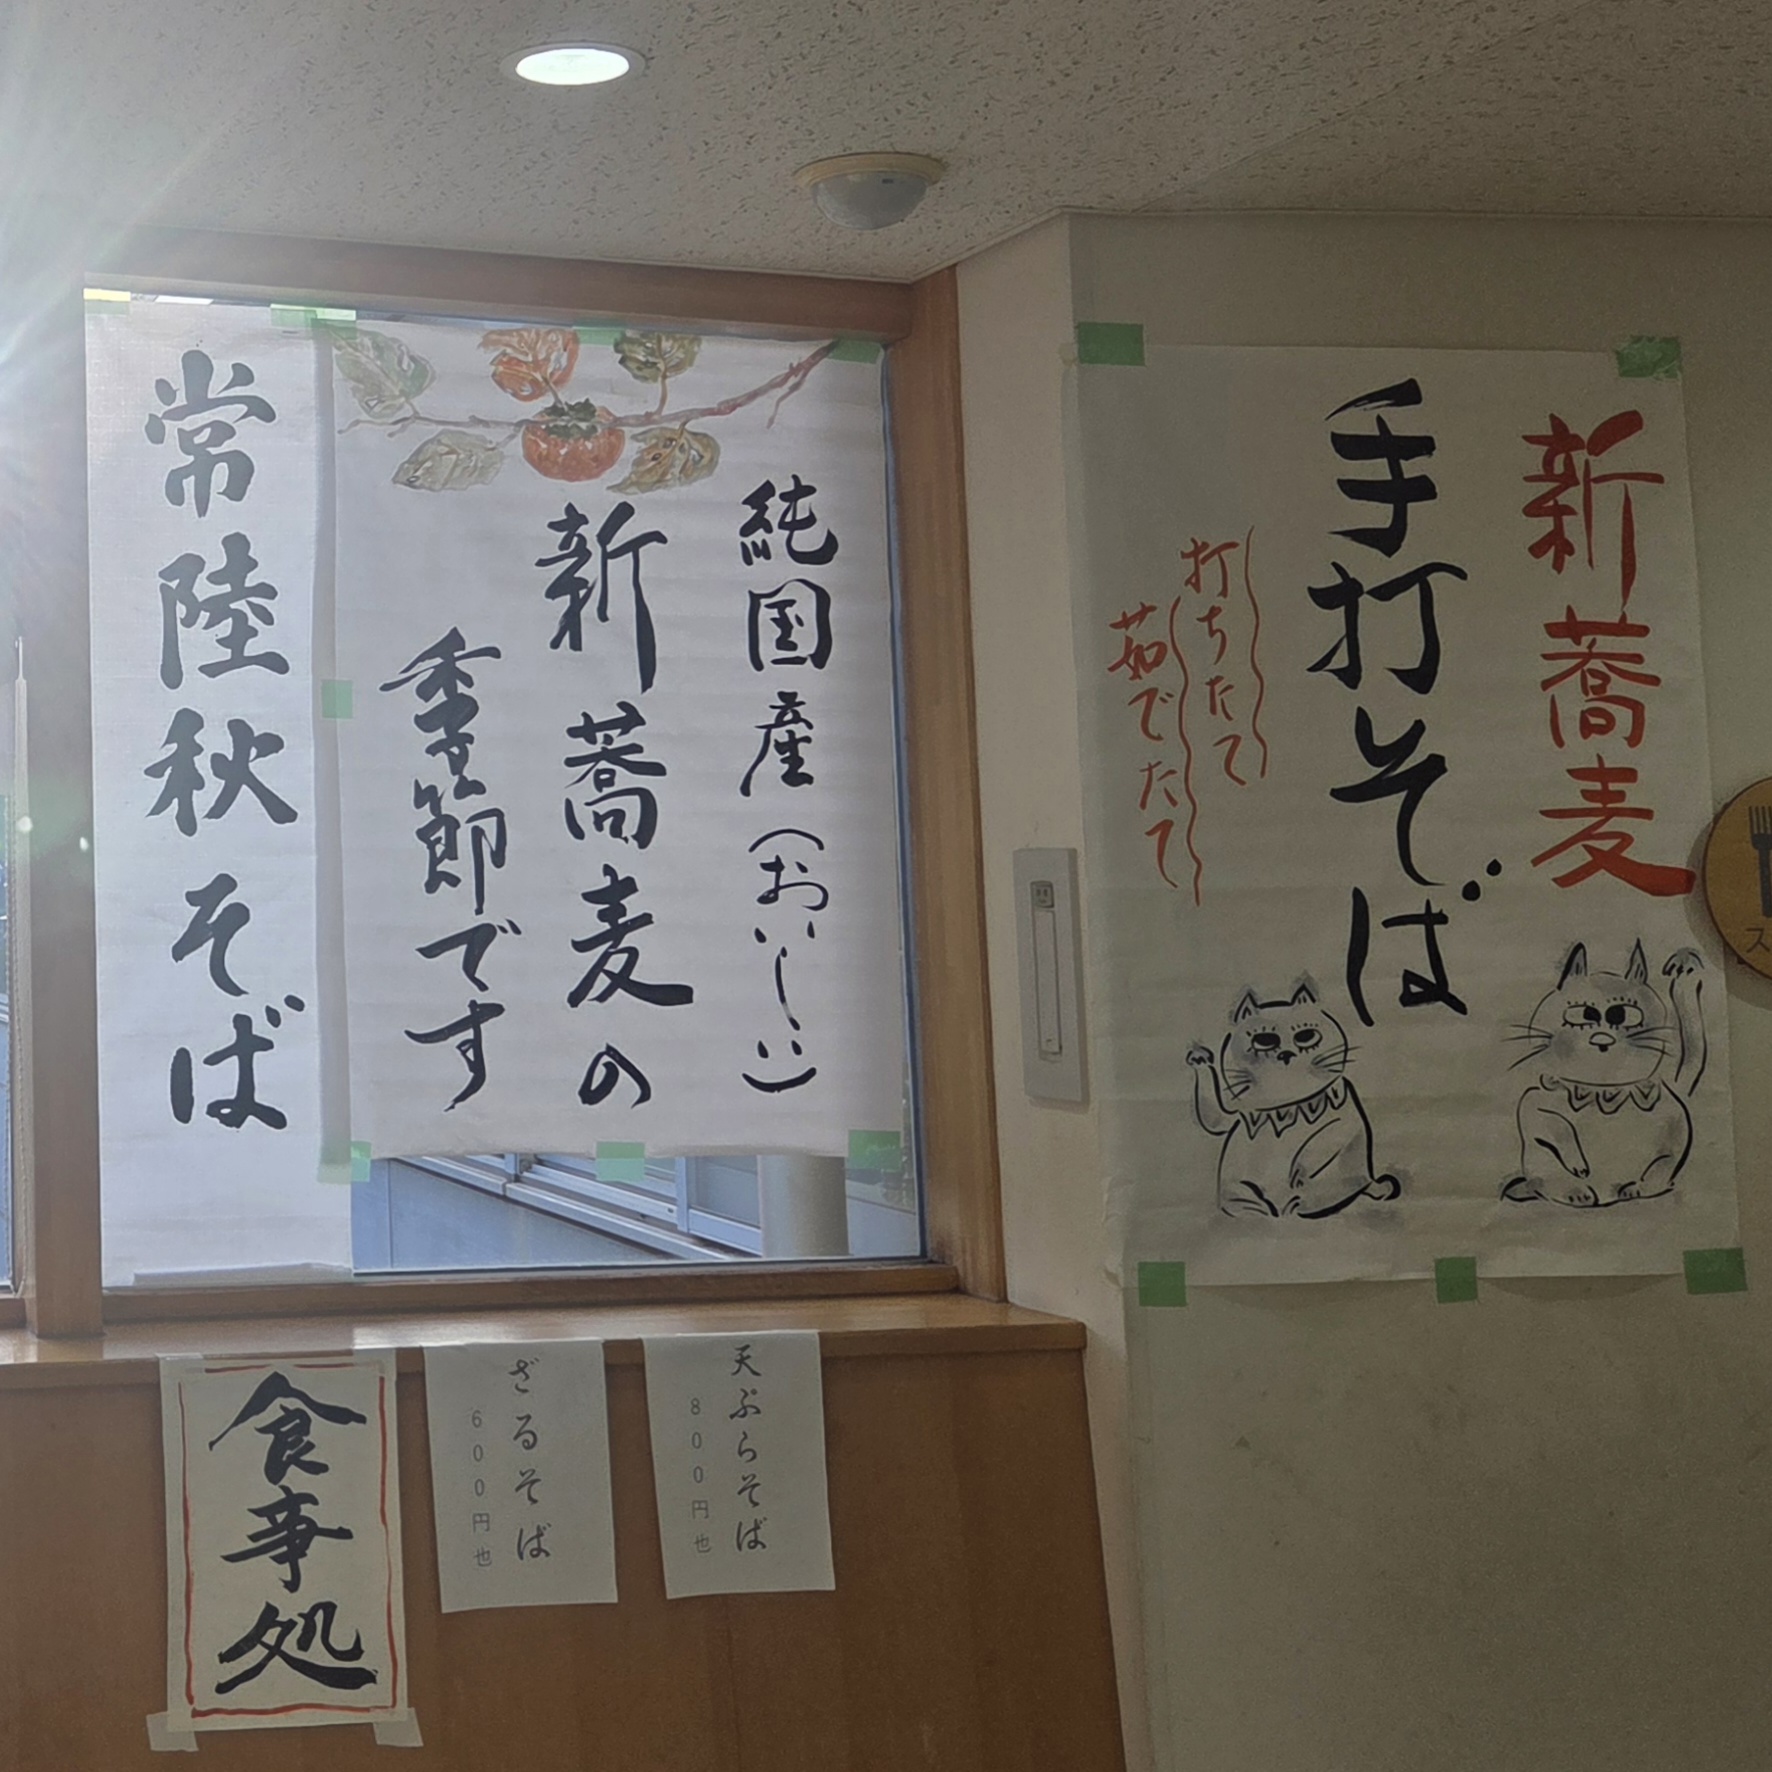 新蕎麦
手打そば
打ちたて
茹でたて
純国産(おいしい)
新蕎麦の
季節です
常陸秋そば
天ぷらそば
800円也
ざるそば
600円也
食事処
ス